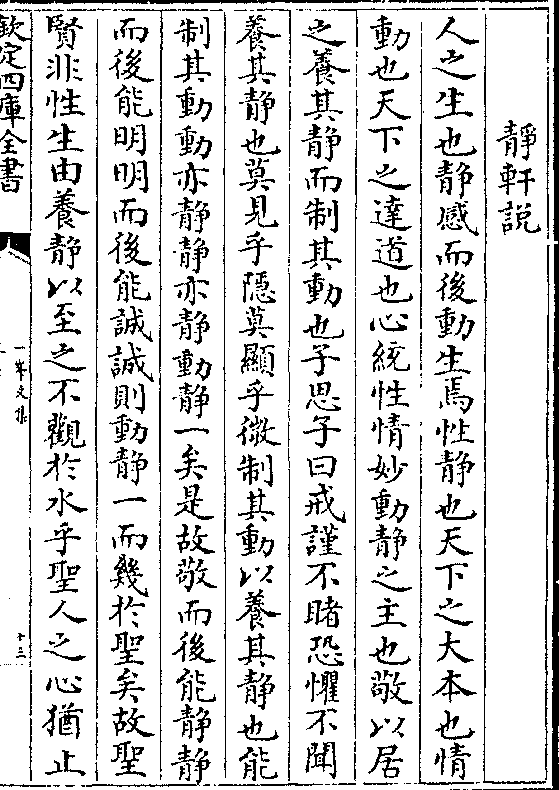 靜軒說
人之生也靜感而後動生焉性靜也天下之大本也情
動也天下之達道也心統性情妙動靜之主也敬以居
之養其靜而制其動也子思子曰戒謹不睹恐懼不聞
養其靜也莫見乎隱莫顯乎微制其動以養其靜也能
制其動動亦靜靜亦靜動靜一矣是故敬而後能靜靜
而後能明明而後能誠誠則動靜一而幾於聖矣故聖
賢非性生由養靜以至之不觀於水乎聖人之心猶止
欽定四庫全書
一峯文集
十三